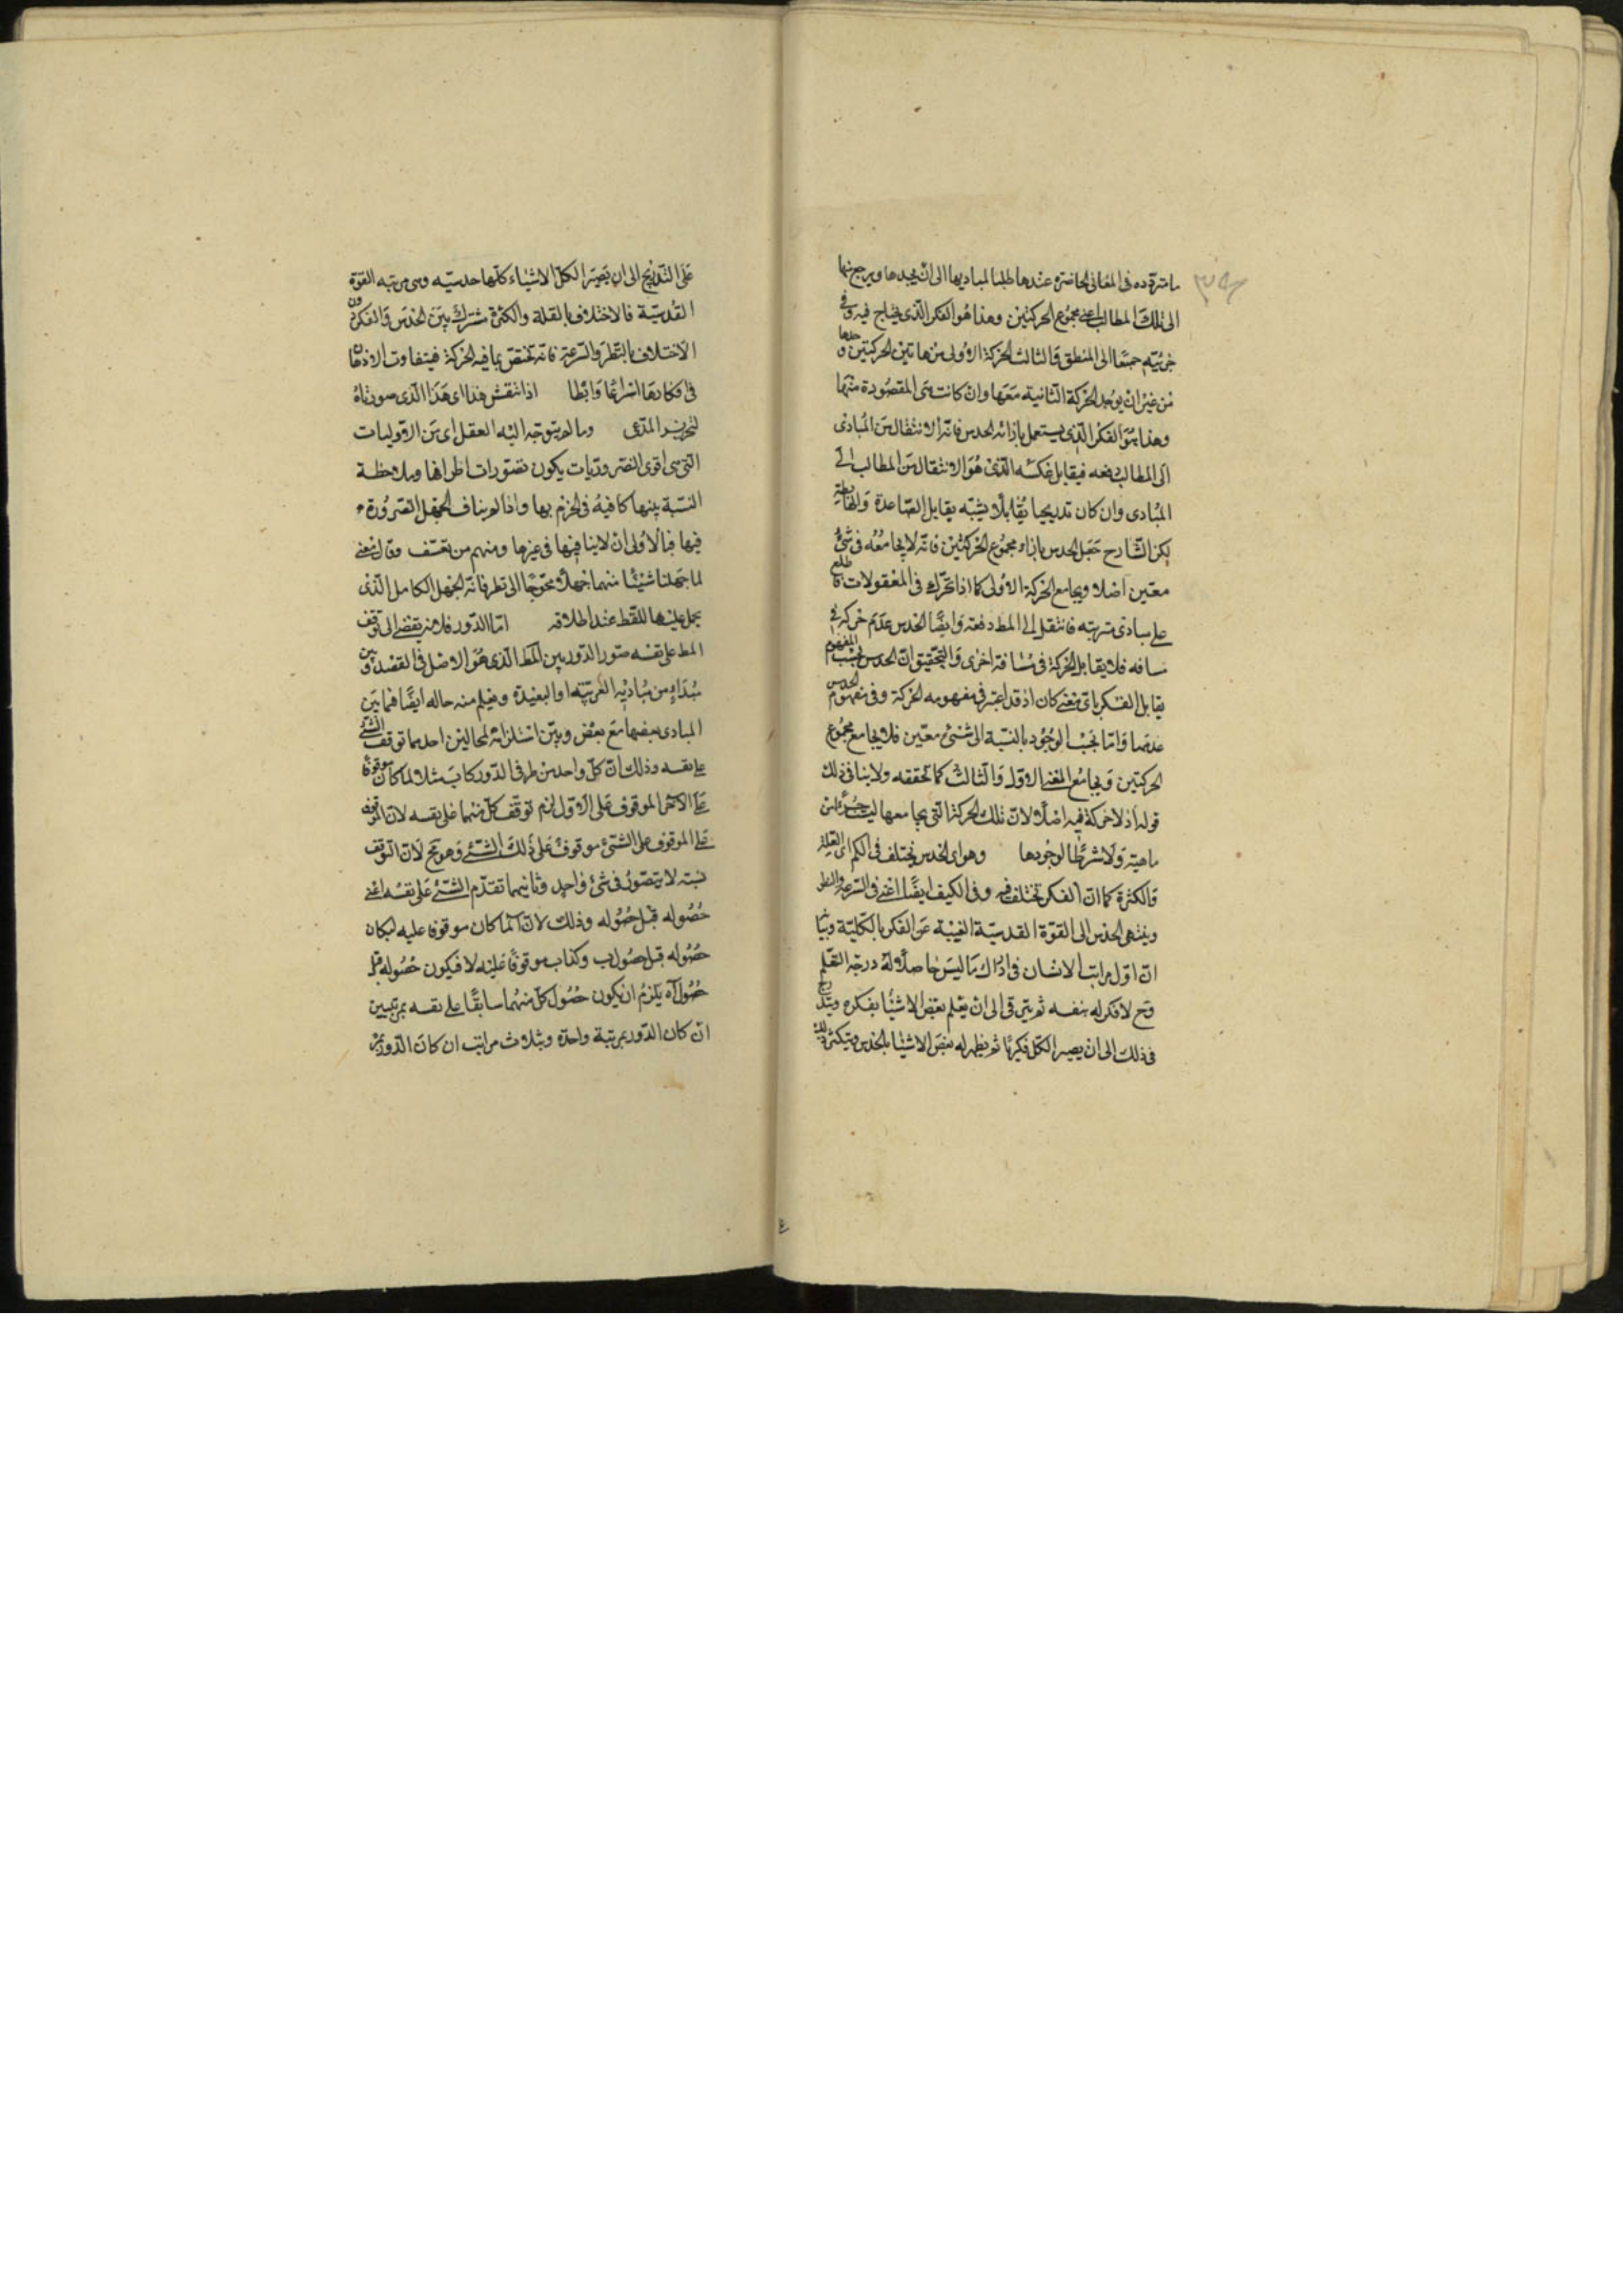 مترددة فى المعانى الحاضرة عندها طلبا لمباديها الى ان يجدها ويرجع منها
الى تلك المطالب اعنى مجموع الحركتين وهذا هو الفكر الذى يحتاج فيه وفى
جزئيه جميعا الى المنطق والثالث الحركة الاولى من هاتين الحركتين وحدها
من غير ان يوجد الحركة الثانية معها وان كانت هى المقصودة منها
وهذا هو الفكر الذى يستعمل بازائه الحدس فانه الانتقال من المبادى
الى المطالب دفعه فيقابل عكسه الذى هو الانتقال من المطالب الى
المبادى وان كان تدريجيا تقابلا يشبه تقابل الصاعدة والهابطة
لكن الشارح جعل الحدس بازاء مجموع الحركتين فانه لا يجامعه فى شئ
معين اصلا ويجامع الحركة الاولى كما اذا تحرك فى المعقولات فاطلع
على مبادى مترتبه فانتقل الى المط دفعة وايضا الحدس عدم حركة فى
مسافه فلا يقابل الحركة فى مسافة اخرى والتحقيق ان الحدس بحسب المفهوم
يقابل الفكر باى معنى كان اذ قد اعتبر فى مفهومه الحركة وفى مفهوم الحدس
عدمها واما بحسب الوجود بالنسبة الى شئ معين فلا يجامع مجموع
الحركتين ويجامع المعنى الاول والثالث كما تحققه ولا ينافى ذلك
قوله اذ لا حركة فيه اصلا لان تلك الحركة التى يجامعها ليست جزءا من
ماهيته ولا شرطا لوجودها وهو اى الحدس يختلف فى الكم اى القلة
والكثرة كما ان الفكر تختلف فيه وفى الكيف ايضا اعنى فى السرعة والبطء
وينتهى الحدس الى القوة القدسية الغنية عن الفكر بالكلية
ان اول مراتب الانسان فى ادراك ما ليس حاصلا له درجة التعلم
وح لا فكر له بنفسه ثم يترقى الى ان يعلم بعض الاشياء بفكره ويتدرج
فى ذلك الى ان يصير الكل فكريا ثم يظهر له بعض الاشياء بالحدس ويتكثر ذلك
على التدريج الى ان يصير الكل الاشياء كلها حدسيه وهى مرتبه القوة
القدسية فالاختلاف بالقلة والكثرة مشترك بين الحدس والفكر دون
الاختلاف بالبطؤ والسرعة فانه يختص بما فيه الحركة فيتفاوت الاذهان
فى افكارها اسراعا وابطا اذا انتقش هذا اى هذا الذى صورناه
لتحرير المدعى وما لم يتوجه اليه العقل اى من الاوليات
التى هى اقوى الضروريات يكون تصورات اطرافها وملاحظة
النسبة بينها كافية فى الجزم بها واذا لم يناف الجهل الضرورة
فيها فبالاولى ان لا ينافيها فى غيرها ومنهم من تعسف وقال معنى
لما جهلنا شيئا منهما جهلا محوجا الى نظر فانه الجهل الكامل الذى
يحمل عليها اللفظ عند اطلاقه اما الدور فلانه يفضى الى توقف
المط على نفسه صور الدور بين المط الذى هو الاصل فى القصد وبين
مبداء من مباديه القريبة او البعيدة ويعلم منه حاله ايضا فيما بين
المبادى بعضها مع بعض وبين استلزامه لمحالين احدهما توقف الشئ
على نفسه وذلك ان كل واحد من طرفى الدور كـ ا ب مثلا لما كان موقوفا
على الآخر الموقوف على الاول لزم توقف كل منهما على نفسه لان الموقوف
على الموقوف على الشئ موقوف على ذلك الشئ وهو مح لان التوقف
نسبة لا يتصور فى شئ واحد وثانيهما تقدم الشئ على نفسه اعنى
حصوله قبل حصوله وذلك لان ا لما كان موقوفا عليه لـ ب كان
حصوله قبل حصول ب وكذا ب موقوفا عليه لـ ا فيكون حصوله قبل
حصول ا ه يلزم ان يكون حصول كل منهما سابقا على نفسه بمرتبتين
ان كان الدور بمرتبة واحدة وبثلاث مراتب ان كان الدور